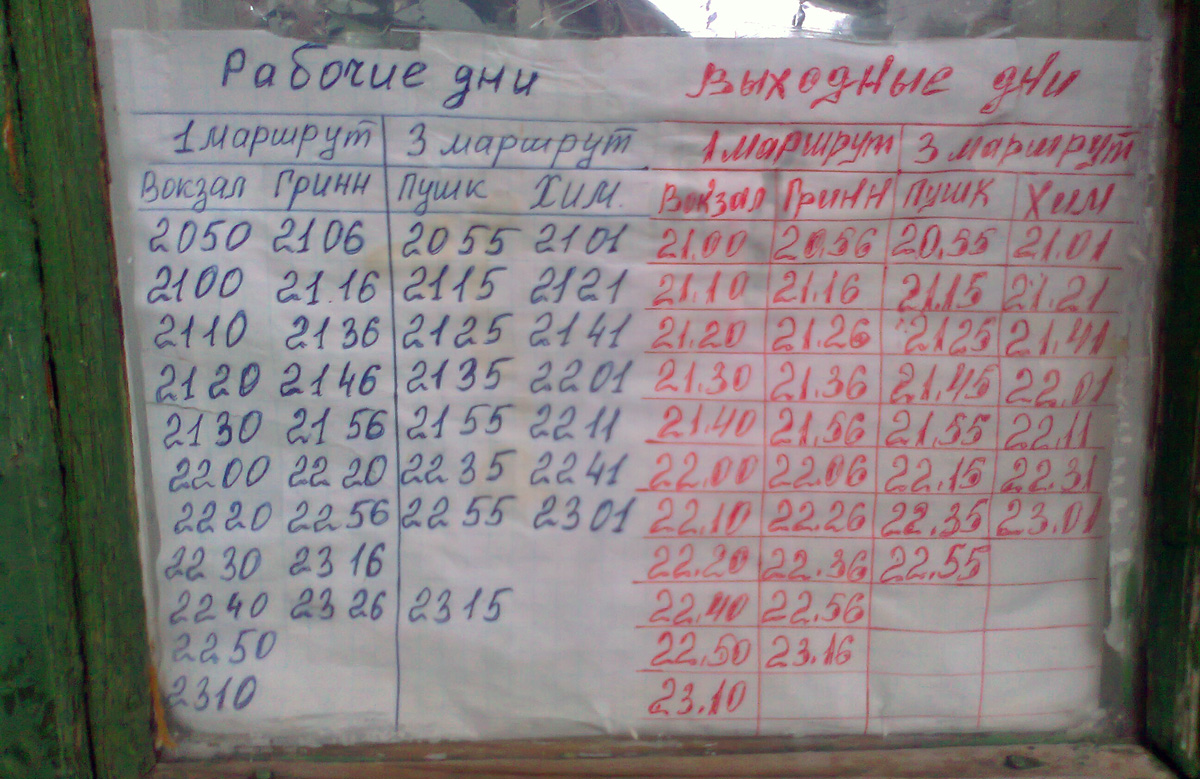 Рабочие дни Выходные дни
1 маршрут 3 маршрут 1 маршрут 3 маршрут
Вокзал Гринн Пушк Хим. Вокзал Гринн Пушк Хим
2050 2106 2055 2101 21.00 20.56 20.55 21.01
2100 21.16 2115 2121 21.10 21.16 21.15 21.21
2110 2136 2125 2141 21.20 21.26 21.25 21.41
2120 2146 2135 2201 21.30 21.36 21.45 22.01
2130 2156 2155 2211 21.40 21.56 21.55 22.11
2200 2220 2235 2241 22.00 22.06 22.15 22.31
2220 2256 2255 2301 22.10 22.26 22.35 23.01
2230 2316 22.20 22.36 22.55
2240 2326 2315 22.40 22.56
2250 22.50 23.16
2310 23.10